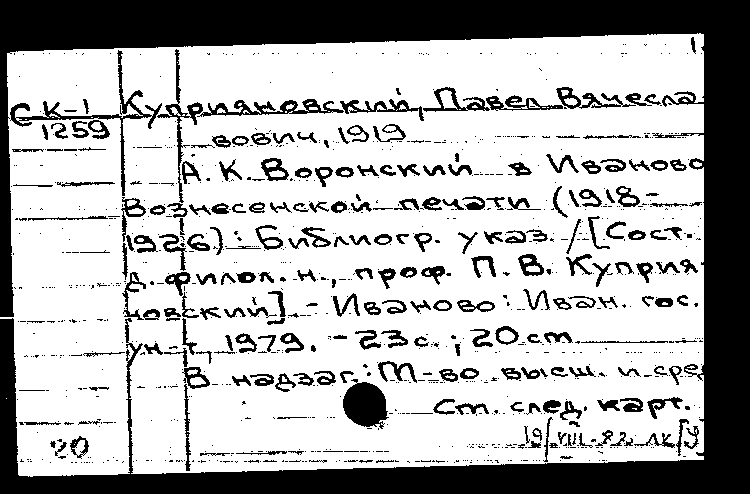 1.
С К-1 Куприяновский, Павел Вячесла-
1259
вович, 1919
А. К. Воронский в Иваново
Вознесенской печати (1918-
1926): Библиогр. указ. / [Сост.
д. филол. н., проф. П. В. Куприя-
новский]. - Иваново: Иван. гос.
ун-т, 1979. - 23 с.; 20 cm
В надзаг.: М-во высш. и сре
Ст. след. карт.
20 19/VIII-82 лк/У